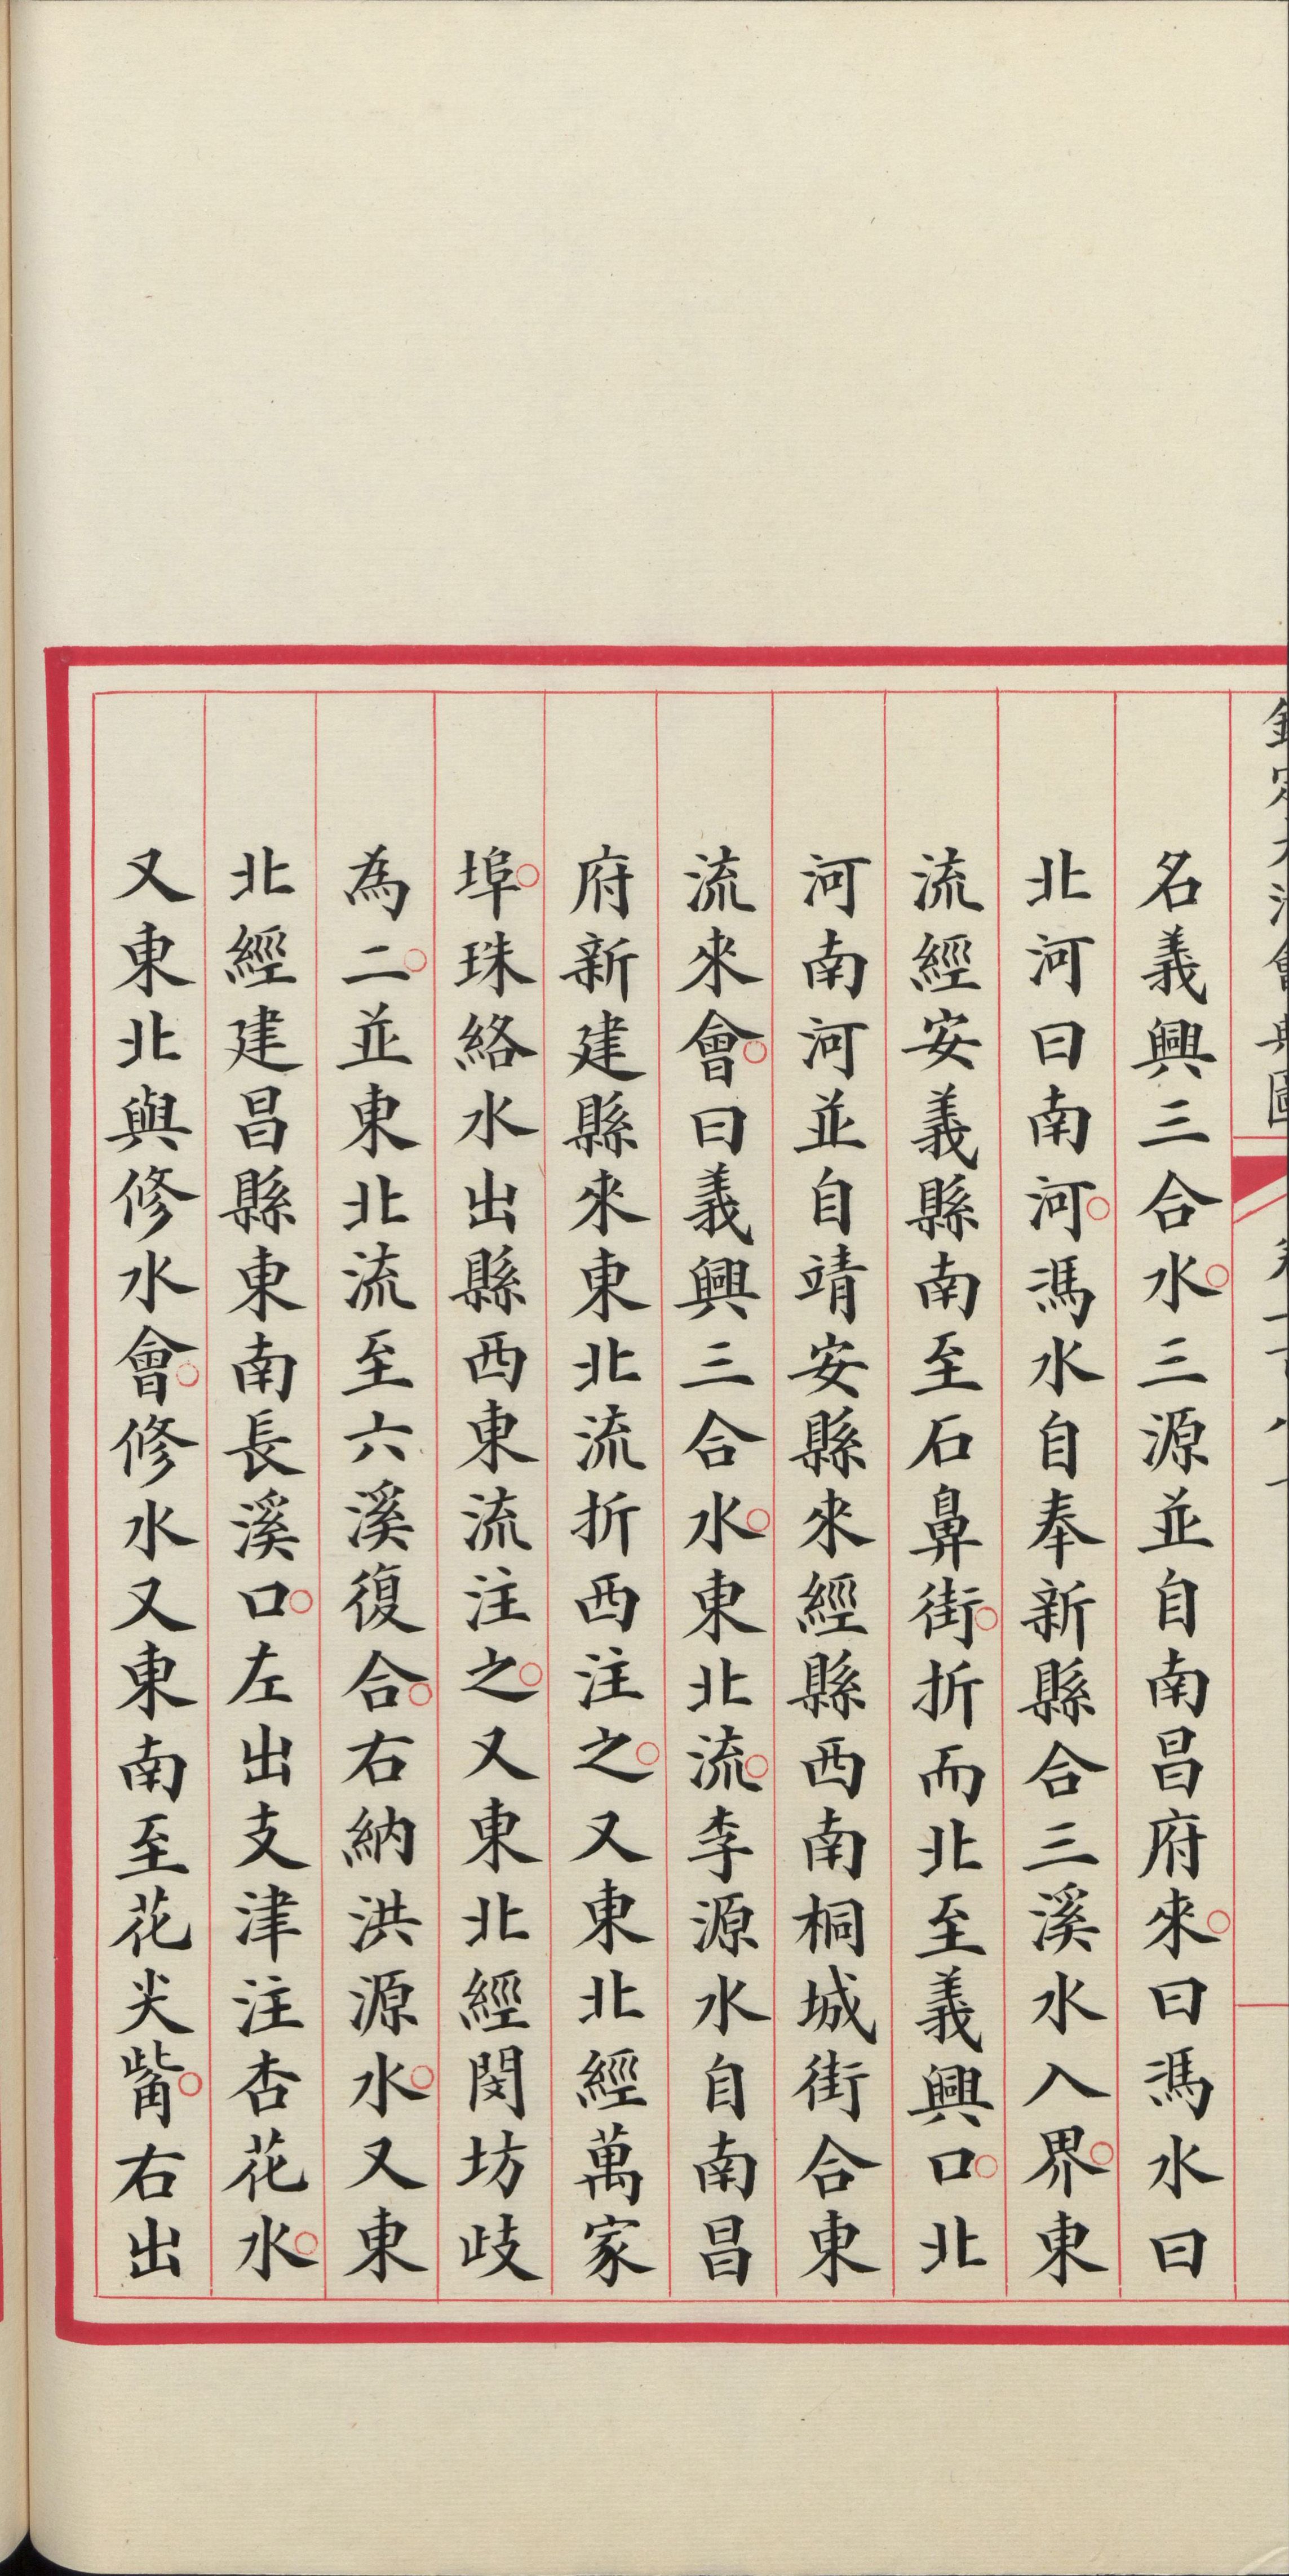 名義興三合水○三源並自南昌府來○曰馮水曰
北河曰南河○馮水自奉新縣合三溪水入界○東
流經安義縣南至石鼻街○折而北至義興口○北
河南河並自靖安縣來經縣西南桐城街合東
流來會○曰義興三合水○東北流○李源水自南昌
府新建縣來東北流折西注之○又東北經萬家
埠○珠絡水出縣西東流注之○又東北經閔坊歧
為二○並東北流至六溪復合○右納洪源水○又東
北經建昌縣東南長溪口○左出支津注杏花水○
又東北與修水會○修水又東南至花尖觜○右出